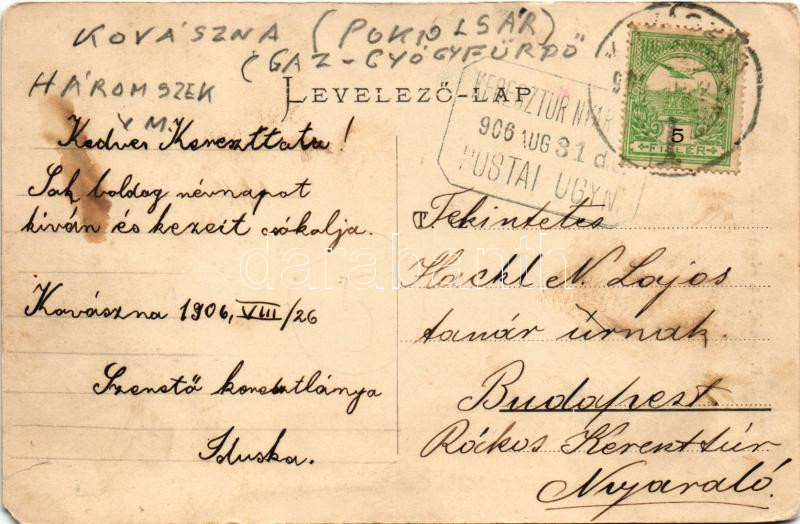 KOVÁSZNA (POKOLSÁR)
(GAZ-GYÓGYFÜRDŐ
HÁROMSZÉK
VM.
LEVELEZŐ-LAP
KERESZTUR NYAR
906 AUG 31 d.
POSTAI ÜGYN
5
FILLÉR
Kedves Kereszttata!
Sok boldog névnapot
kíván és kezeit csókolja.
Kovászna 1906, VIII/26
Szerető keresztlánya
Iduska.
Tekintetes
Hackl N. Lajos
tanár úrnak
Budapest.
Rákos Keresztúr
Nyaraló.
darabanth